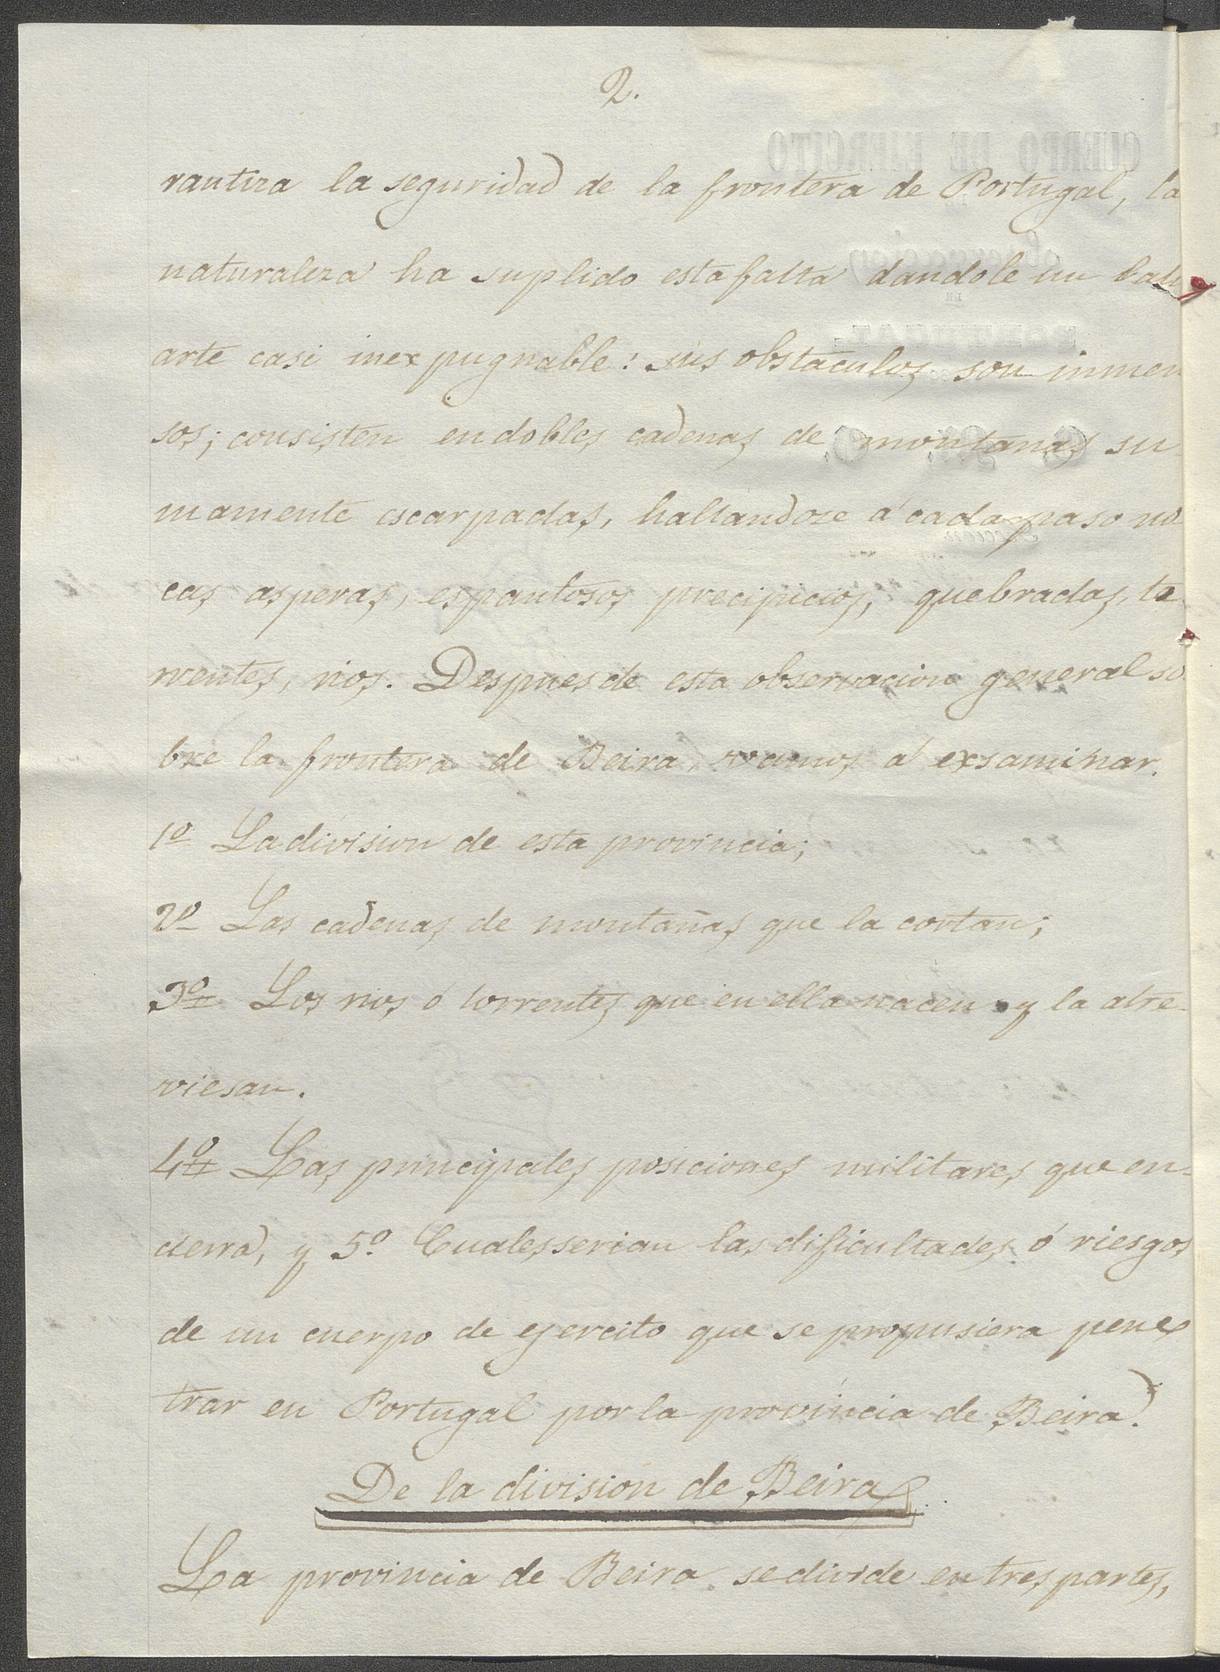 2.
rantiza la seguridad de la frontera de Portugal, la
naturaleza ha suplido esta falta dandole un balu
arte casi inexpugnable: sus obstaculos son inmen
sos; consisten en dobles cadenas de montanas su
mamente escarpadas, hallandose á cada paso ro
cas asperas, espantosos precipicios, quebradas, to
rrentes, rios. Despues de esta observacion general so
bre la frontera de Beira, vamos á exsaminar.
1º La division de esta provincia;
2º Las cadenas de montañas que la cortan;
3º Los rios ó torrentes que en ella nacen y la atre-
viesan.
4º Las principales posiciones militares que en-
cierra, y 5º Cuales serian las dificultades ó riesgos
de un cuerpo de ejercito que se propusiera pene
trar en Portugal por la provincia de Beira.
De la division de Beira
La provincia de Beira se divide en tres partes,
CUERPO DE EJERCITO
observacion
DE
PORTUGAL